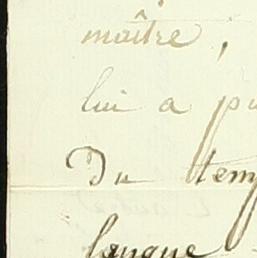 maître,
lui a pu
Du temp
langue